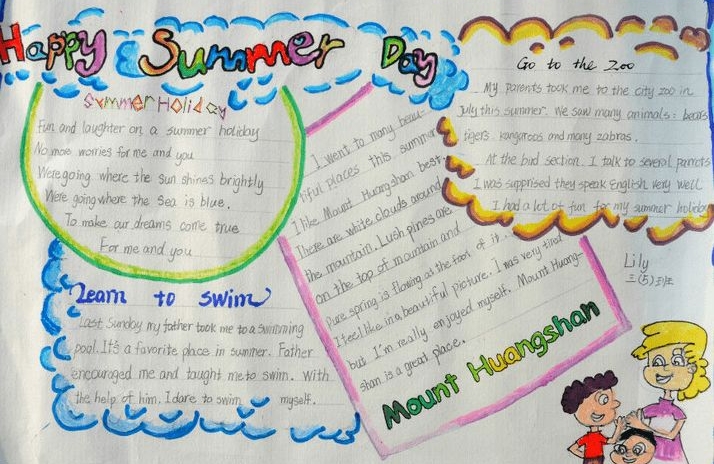 Happy Summer Day
Summer Holiday
Fun and laughter on a summer holiday
No more worries for me and you
We're going where the sun shines brightly
We're going where the sea is blue.
To make our dreams come true
For me and you
Learn to swim
Last Sunday my father took me to a swimming
pool. It's a favorite place in summer. Father
encouraged me and taught me to swim. With
the help of him, I dare to swim myself.
I went to many beau-
tiful places this summer
I like Mount Huangshan best.
There are white clouds around
the mountain. Lush pines are
on the top of mountain and
Pure spring is flowing at the foot of it...
I feel like in a beautiful picture. I was very tired
but I'm really enjoyed myself. Mount Huang-
shan is a great place.
Mount Huangshan
Go to the Zoo
My parents took me to the city zoo in
July this summer. We saw many animals: bears
tigers. kangaroos and many zabras.
At the bird section. I talk to several parrots
I was supprised they speak English very well
I had a lot of fun for my summer holiday
Lily
三(5)班